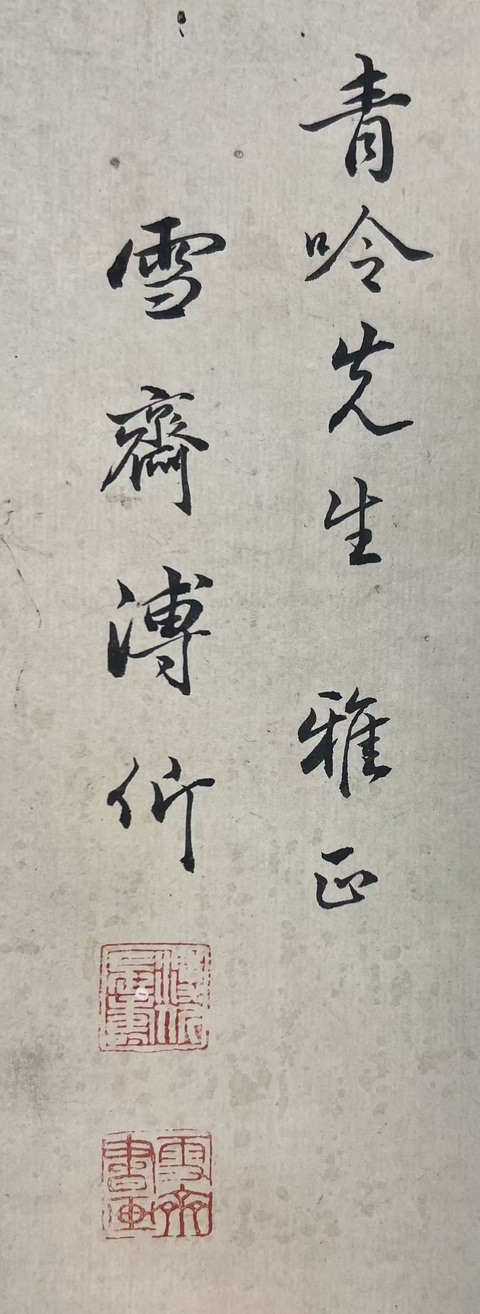 青吟先生 雅正
雪齋溥伒
溥伒
雪齋書画